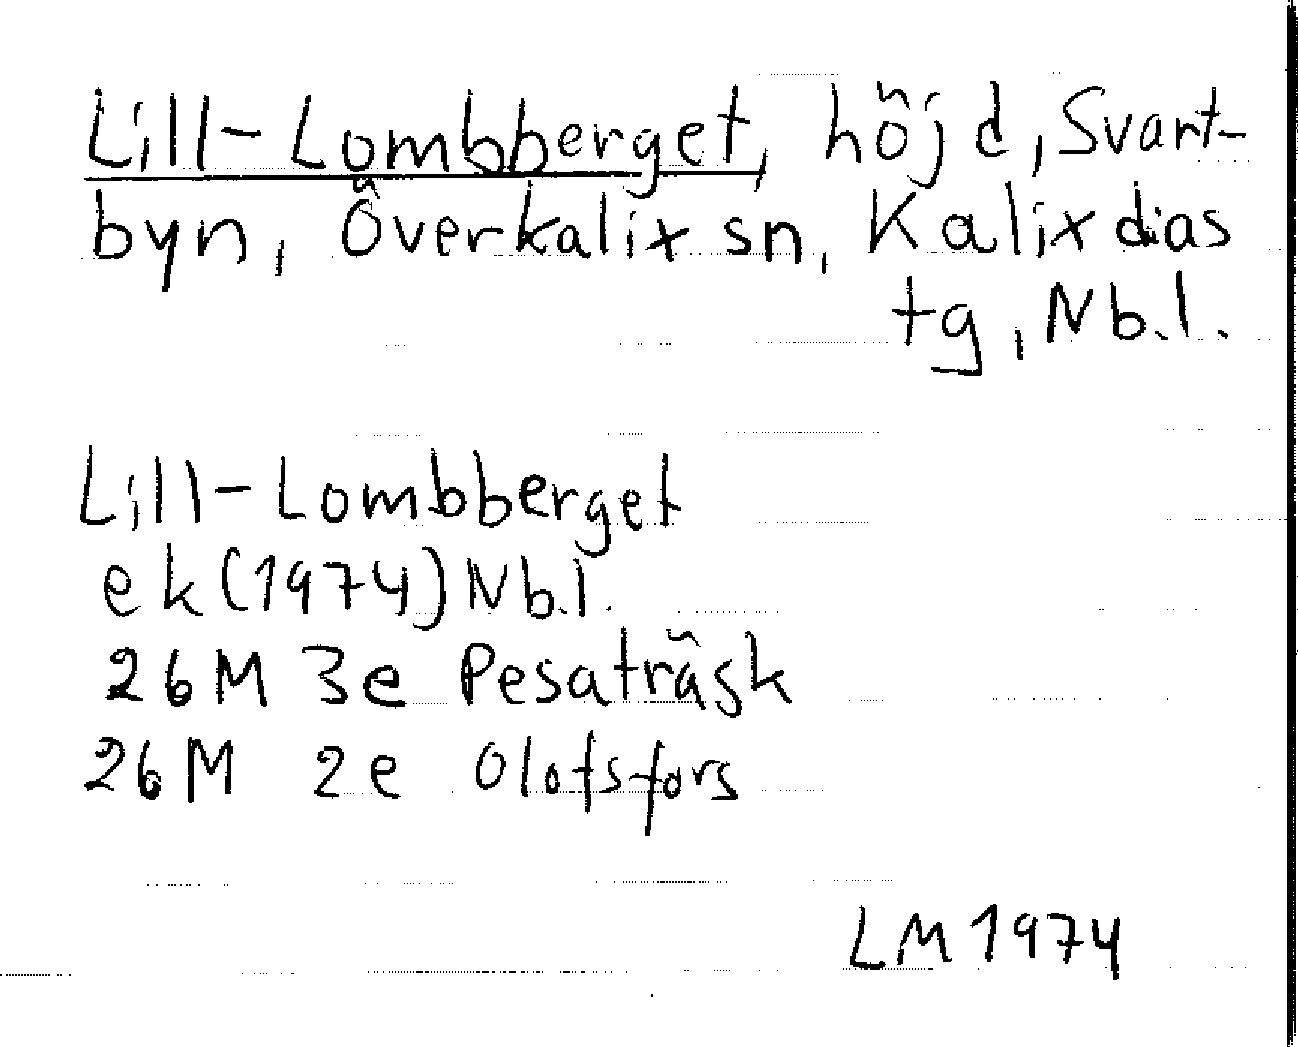 Lill-Lombberget, höjd, Svart-
byn, Överkalix sn, Kalix dias
tg, Nb.l.
Lill-Lombberget
ek (1974) Nb.l.
26M 3e Pesaträsk
26M 2e Olofsfors
LM 1974